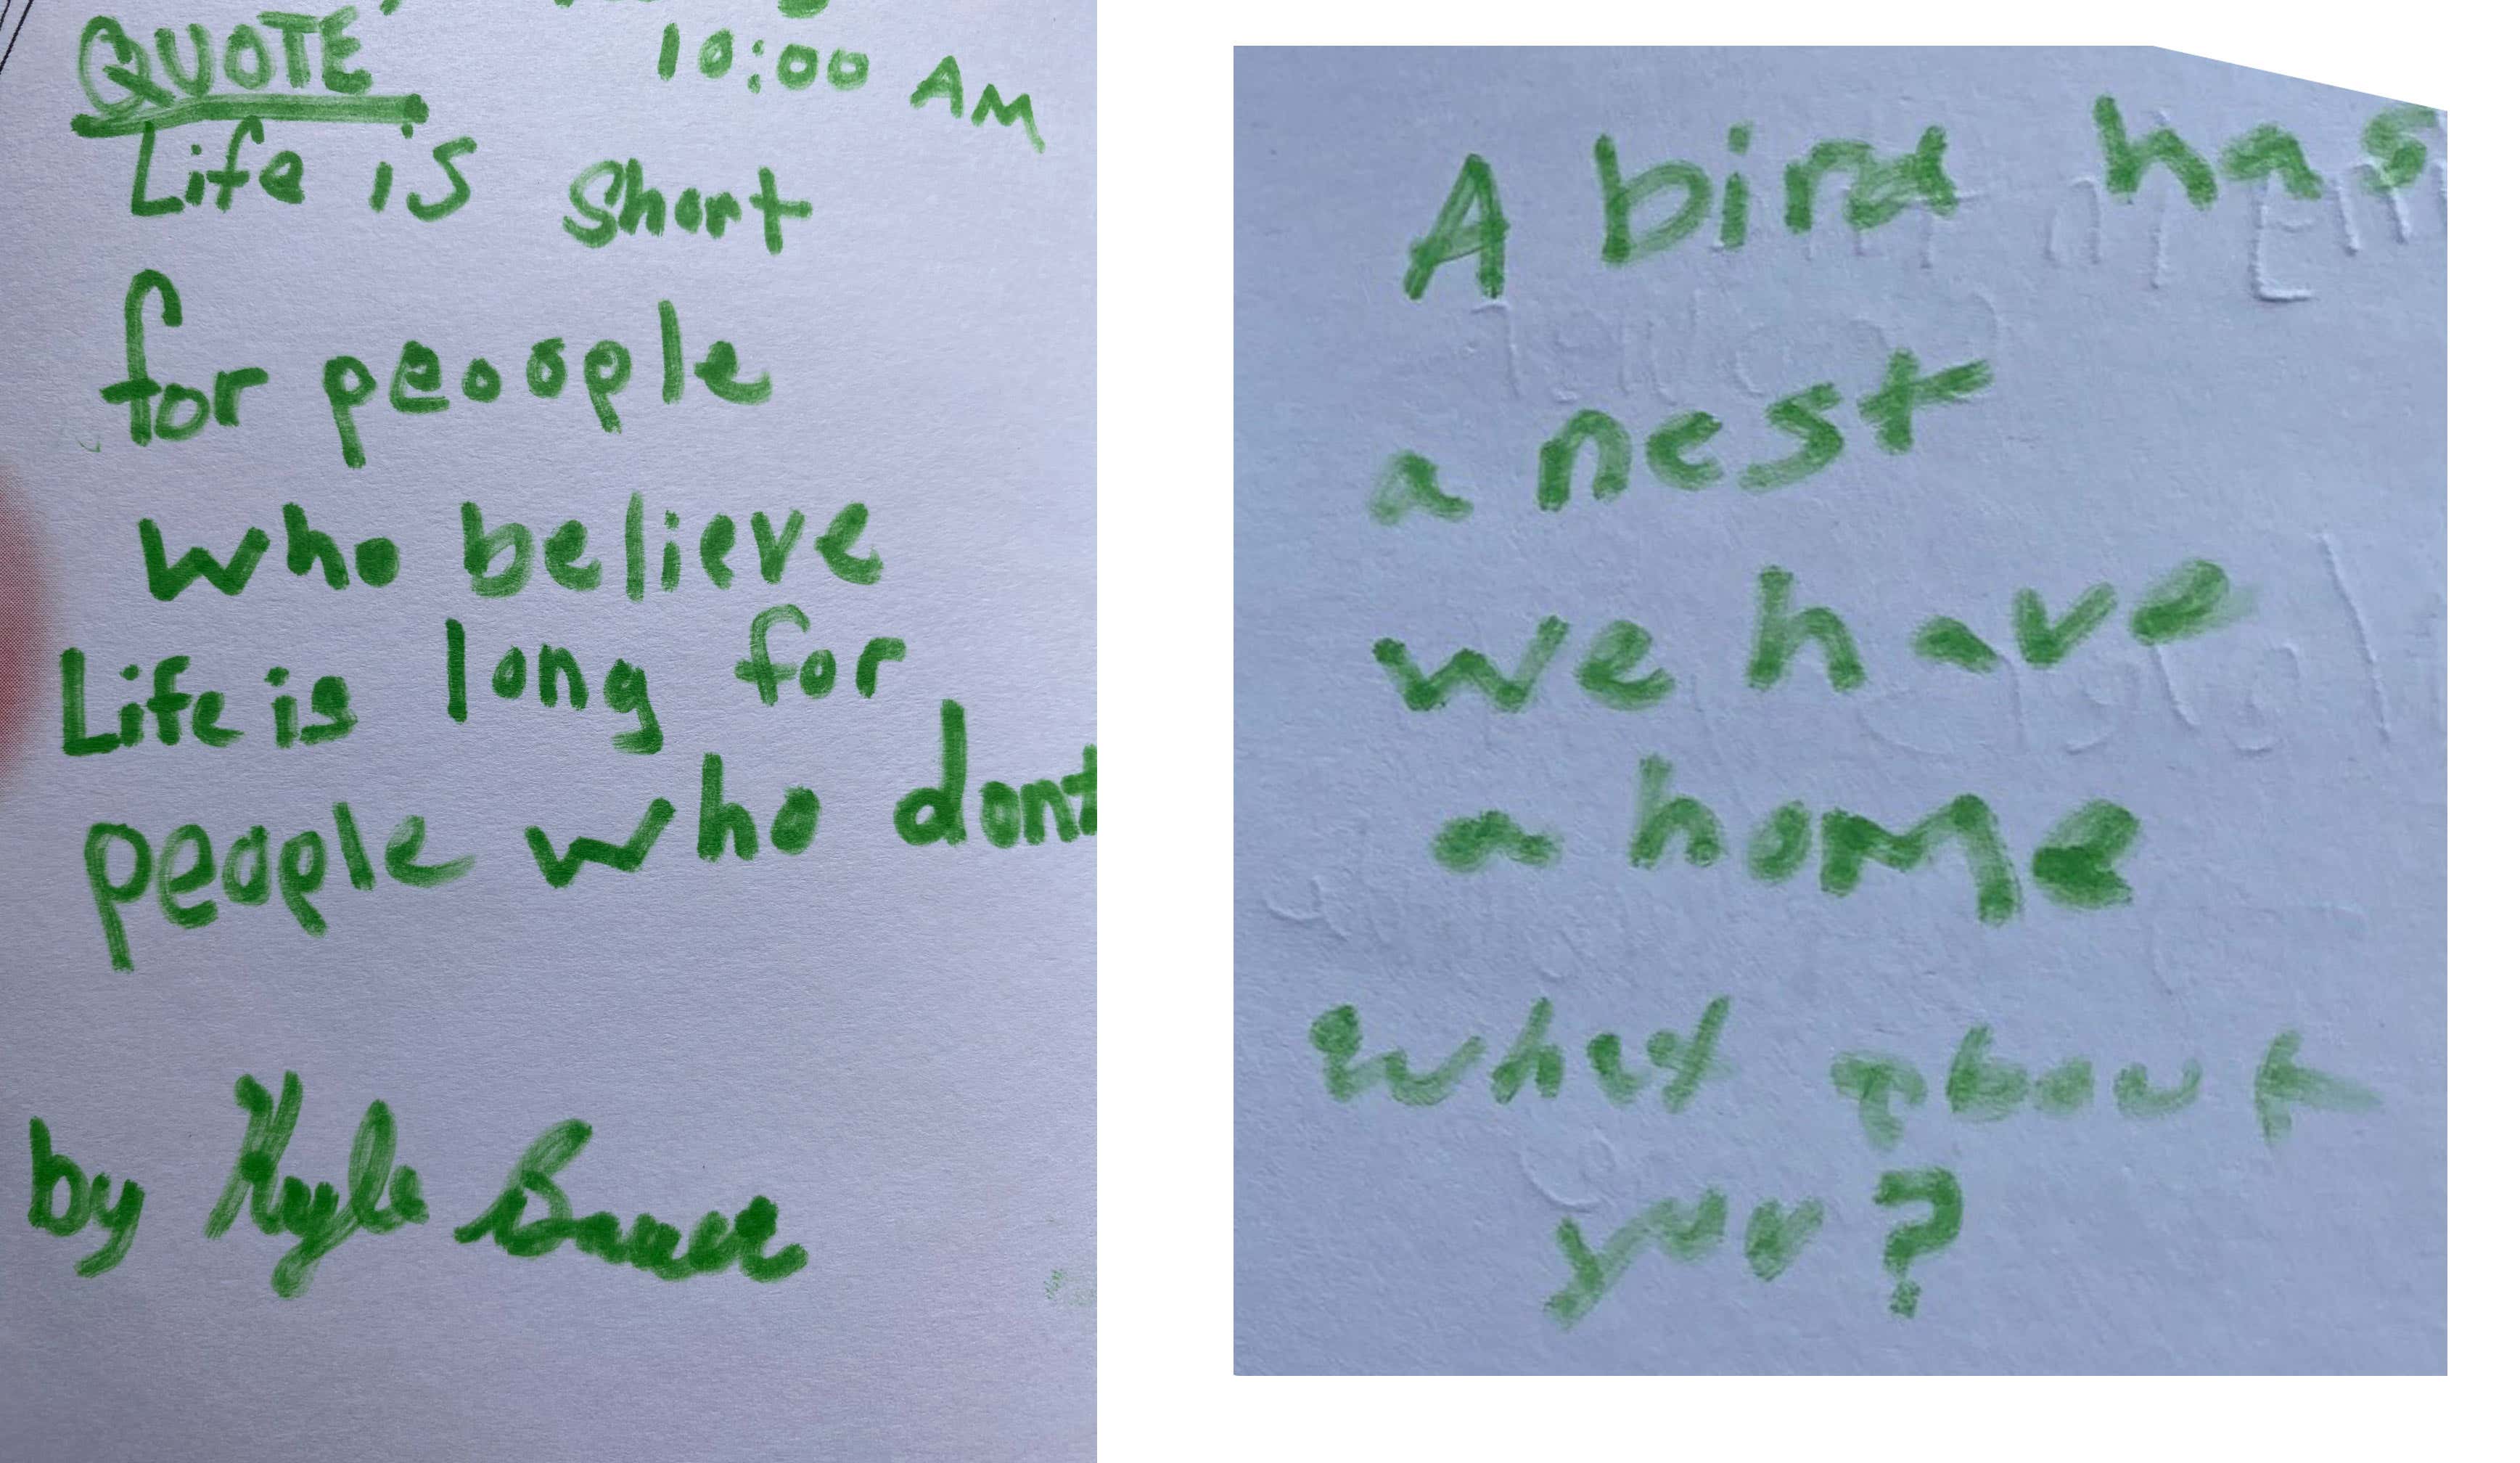 QUOTE
10:00 AM
Life is short
for peoople
who believe
Life is long for
people who dont
by Kyle
A bird has
a nest
we have
a home
what about
you?